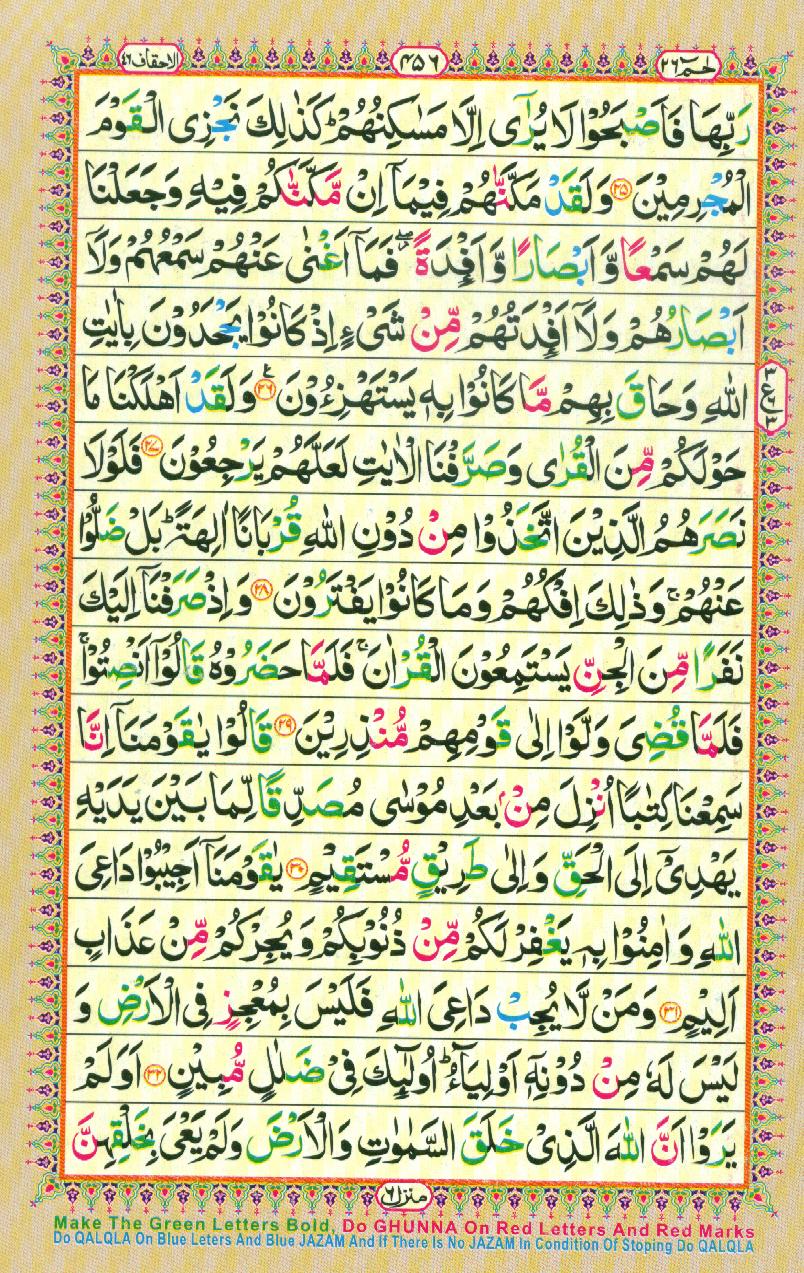 الاحقاف ٤٦
٤٥٦
حٰمٓ ٢٦
رَبِّهَا فَاَصْبَحُوْا لَا يُرٰٓى اِلَّا مَسٰكِنُهُمْ ؕ كَذٰلِكَ نَجْزِى الْقَوْمَ
الْمُجْرِمِيْنَ ﴿۲۵﴾ وَلَقَدْ مَكَّنّٰهُمْ فِيْمَاۤ اِنْ مَّكَّنّٰكُمْ فِيْهِ وَجَعَلْنَا
لَهُمْ سَمْعًا وَّ اَبْصَارًا وَّ اَفْـِٕدَةً ۖ فَمَاۤ اَغْنٰى عَنْهُمْ سَمْعُهُمْ وَلَاۤ
اَبْصَارُهُمْ وَلَاۤ اَفْـِٕدَتُهُمْ مِّنْ شَىْءٍ اِذْ كَانُوْا يَجْحَدُوْنَ بِاٰيٰتِ
اللّٰهِ وَحَاقَ بِهِمْ مَّا كَانُوْا بِهٖ يَسْتَهْزِءُوْنَ ﴿۲۶﴾ وَلَقَدْ اَهْلَكْنَا مَا
٣
ع
٣
حَوْلَكُمْ مِّنَ الْقُرٰى وَصَرَّفْنَا الْاٰيٰتِ لَعَلَّهُمْ يَرْجِعُوْنَ ﴿۲۷﴾ فَلَوْلَا
نَصَرَهُمُ الَّذِيْنَ اتَّخَذُوْا مِنْ دُوْنِ اللّٰهِ قُرْبَانًا اٰلِهَةً ؕ بَلْ ضَلُّوْا
عَنْهُمْ ۚ وَذٰلِكَ اِفْكُهُمْ وَمَا كَانُوْا يَفْتَرُوْنَ ﴿۲۸﴾ وَاِذْ صَرَفْنَاۤ اِلَيْكَ
نَفَرًا مِّنَ الْجِنِّ يَسْتَمِعُوْنَ الْقُرْاٰنَ ۚ فَلَمَّا حَضَرُوْهُ قَالُوْۤا اَنْصِتُوْا ۚ
فَلَمَّا قُضِىَ وَلَّوْا اِلٰى قَوْمِهِمْ مُّنْذِرِيْنَ ﴿۲۹﴾ قَالُوْا يٰقَوْمَنَاۤ اِنَّا
سَمِعْنَا كِتٰبًا اُنْزِلَ مِنْۢ بَعْدِ مُوْسٰى مُصَدِّقًا لِّمَا بَيْنَ يَدَيْهِ
يَهْدِىْۤ اِلَى الْحَقِّ وَاِلٰى طَرِيْقٍ مُّسْتَقِيْمٍ ﴿۳۰﴾ يٰقَوْمَنَاۤ اَجِيْبُوْا دَاعِىَ
اللّٰهِ وَ اٰمِنُوْا بِهٖ يَغْفِرْ لَكُمْ مِّنْ ذُنُوْبِكُمْ وَيُجِرْكُمْ مِّنْ عَذَابٍ
اَلِيْمٍ ﴿۳۱﴾ وَمَنْ لَّا يُجِبْ دَاعِىَ اللّٰهِ فَلَيْسَ بِمُعْجِزٍ فِى الْاَرْضِ وَ
لَيْسَ لَهٗ مِنْ دُوْنِهٖۤ اَوْلِيَآءُ ؕ اُولٰٓئِكَ فِىْ ضَلٰلٍ مُّبِيْنٍ ﴿۳۲﴾ اَوَلَمْ
يَرَوْا اَنَّ اللّٰهَ الَّذِىْ خَلَقَ السَّمٰوٰتِ وَالْاَرْضَ وَلَمْ يَعْىَ بِخَلْقِهِنَّ
منزل ٦
Make The Green Letters Bold, Do GHUNNA On Red Letters And Red Marks
Do QALQLA On Blue Leters And Blue JAZAM And If There Is No JAZAM In Condition Of Stoping Do QALQLA